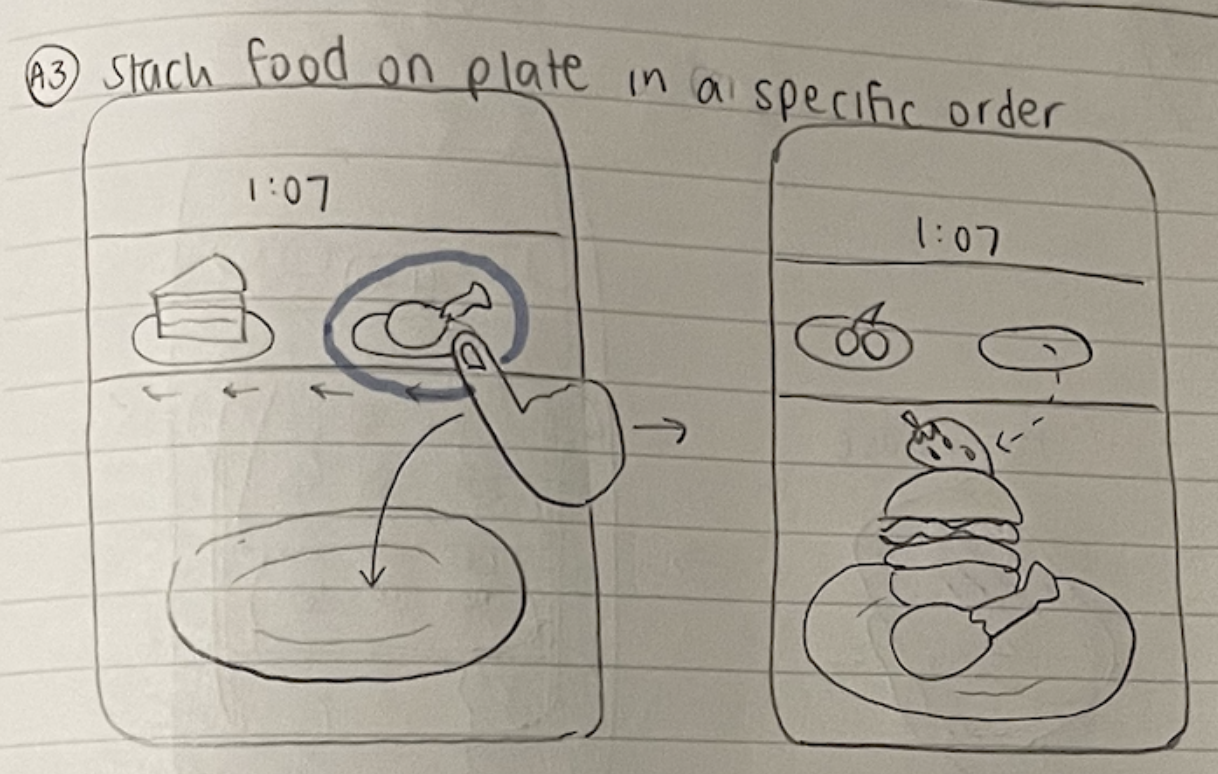 A3 Stach food on plate in a specific order
1:07
1:07